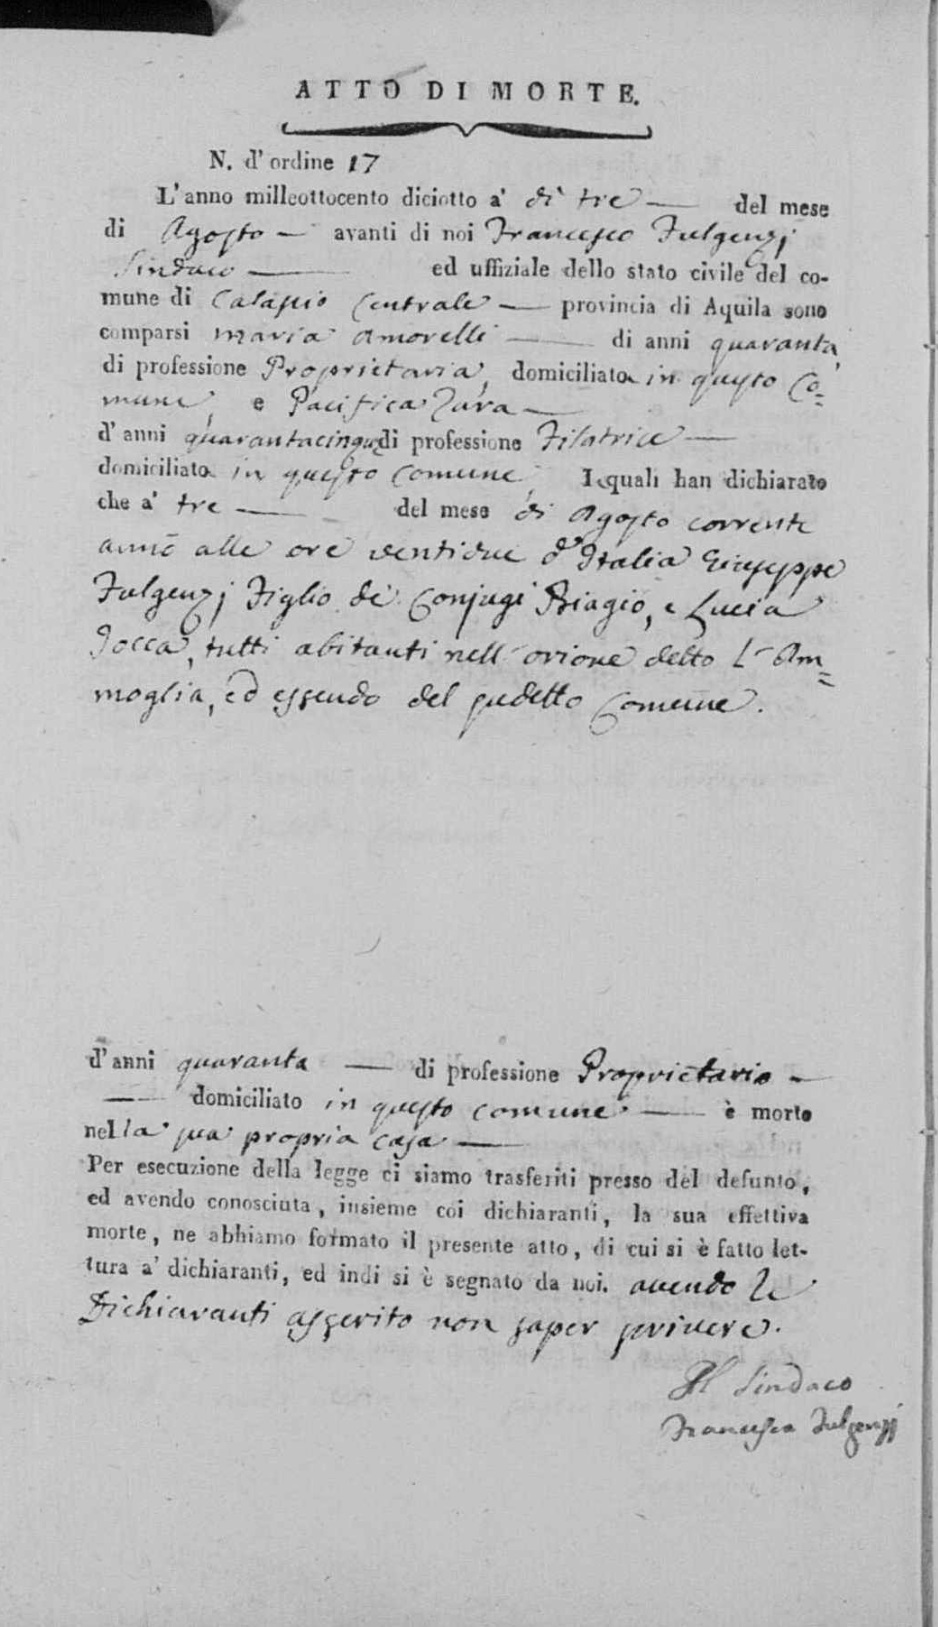 ATTO DI MORTE.
N. d'ordine 17
L'anno milleottocento diciotto a' dì tre — del mese
di Agosto — avanti di noi Francesco Fulgenzj
Sindaco — ed uffiziale dello stato civile del co-
mune di Calascio Centrale — provincia di Aquila sono
comparsi maria Amorelli — di anni quaranta
di professione Proprietaria, domiciliata in questo Co=
mune, e Pacifica Zara —
d'anni quarantacinque di professione Filatrice —
domiciliata in questo comune, I quali han dichiarato
che a' tre — del mese di Agosto corrente
anno alle ore ventidue d'Italia Giuseppe
Fulgenzj Figlio de' Conjugi Biagio, e Lucia
tutti abitanti nell' orione detto L'Am=
moglia, ed essendo del sudetto Comune.
d'anni quaranta — di professione Proprietario —
— domiciliato in questo comune — è morto
nella sua propria casa —
Per esecuzione della legge ci siamo trasferiti presso del defunto,
ed avendo conosciuta, insieme coi dichiaranti, la sua effettiva
morte, ne abbiamo formato il presente atto, di cui si è fatto let-
tura a' dichiaranti, ed indi si è segnato da noi. avendo le
Dichiaranti asserito non saper scrivere.
Il Sindaco
Francesco Fulgenzj